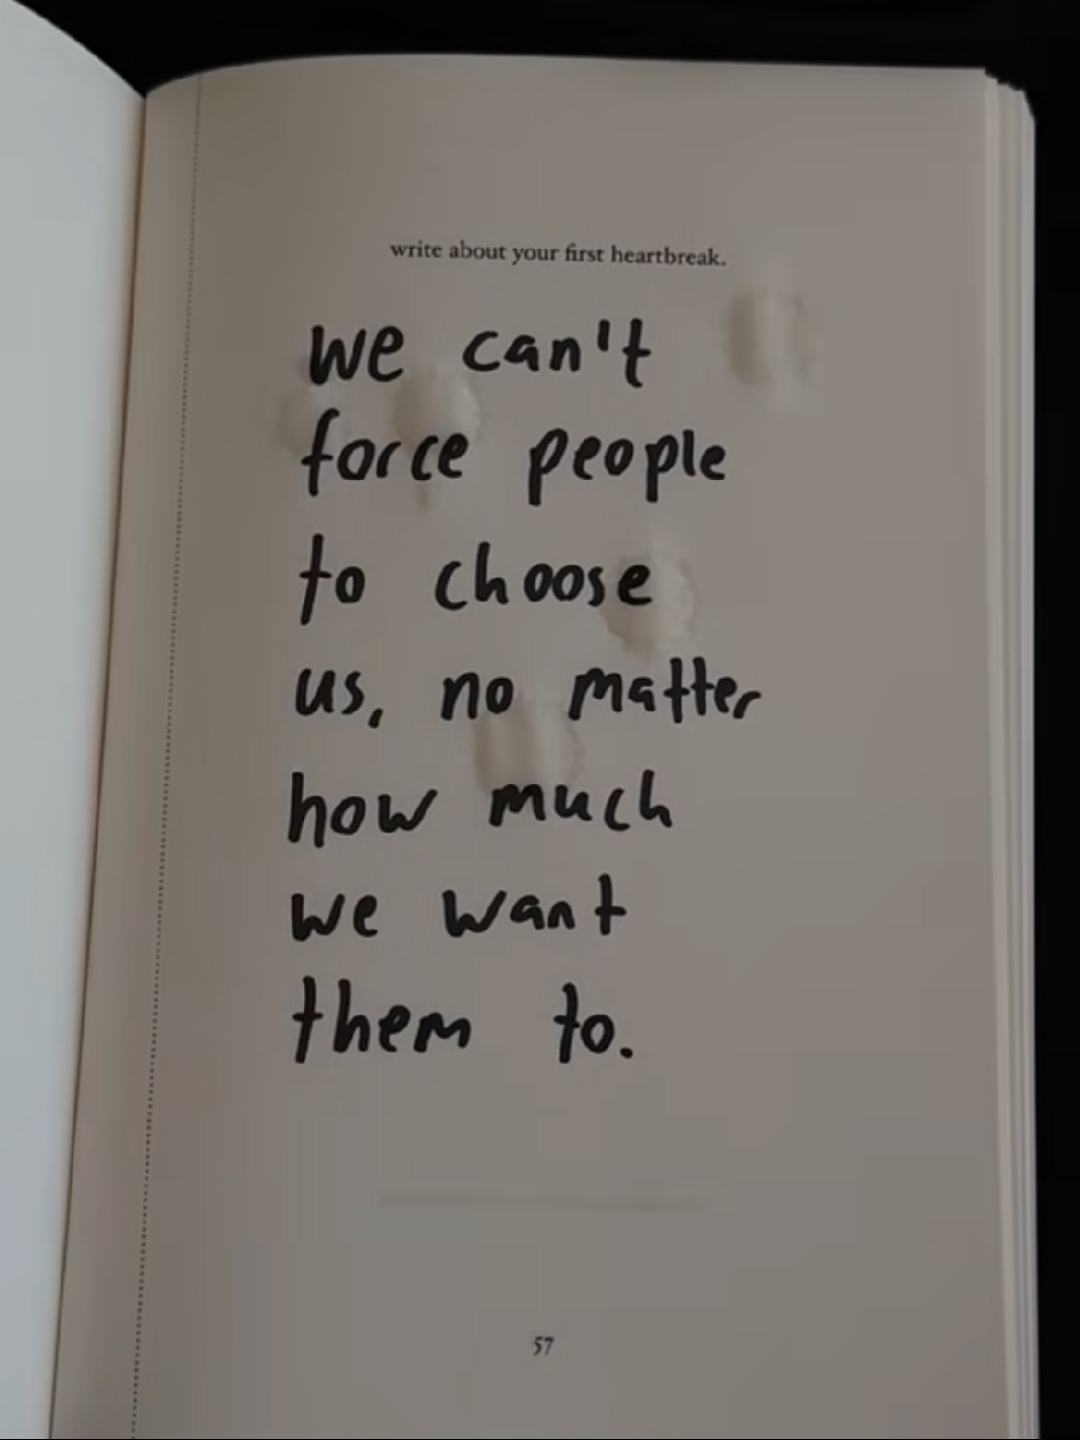 write about your first heartbreak.
we can't
force people
to choose
us, no matter
how much
we want
them to.
57